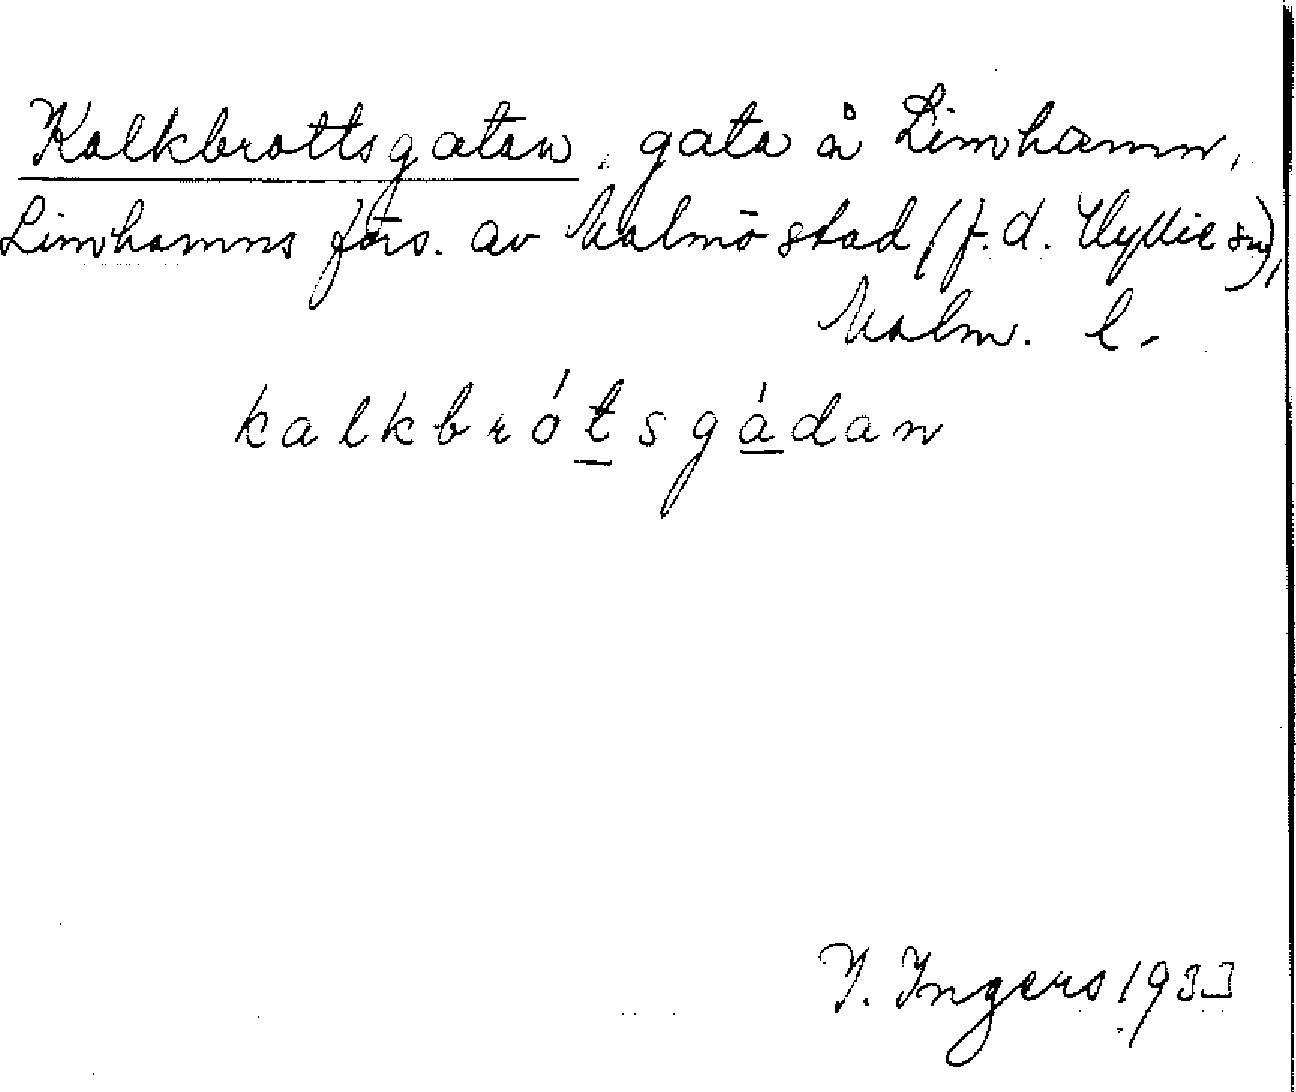 Kalkbrottsgatan, gata å Limhamn,
Limhamns förs. av Malmö stad (f.d. Hyllie sn),
Malm. l.
kalkbrótsgádan
I. Ingers 1933